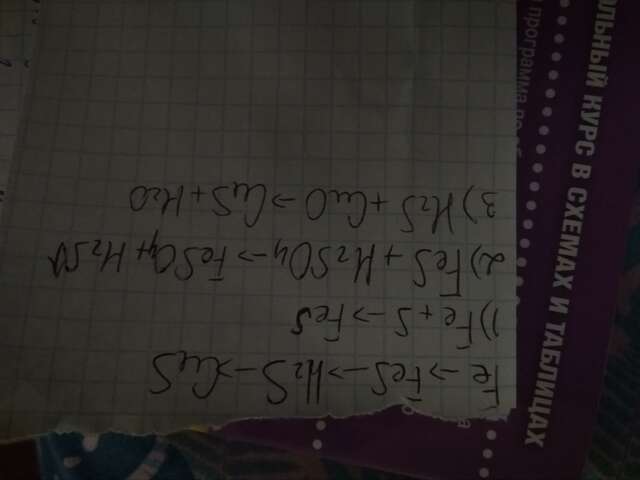 Fe → FeS → H₂S → CuS
1) Fe + S → FeS
2) FeS + H₂SO₄ → FeSO₄ + H₂S↑
3) H₂S + CuO → CuS + H₂O
ОЛЬНЫЙ КУРС В СХЕМАХ И ТАБЛИЦАХ
программа по